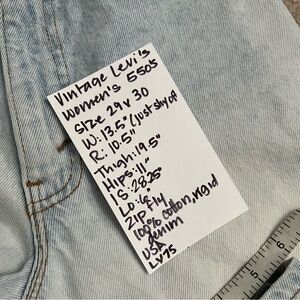 Vintage Levi's
Women's 550s
Size 29 x 30
W: 13.5" (just shy of
R: 10.5"
Thigh: 19.5"
Hips: 11"
IS: 28.25"
Lo: 6"
Zip fly
100% cotton, rigid
denim
USA
LV75
5